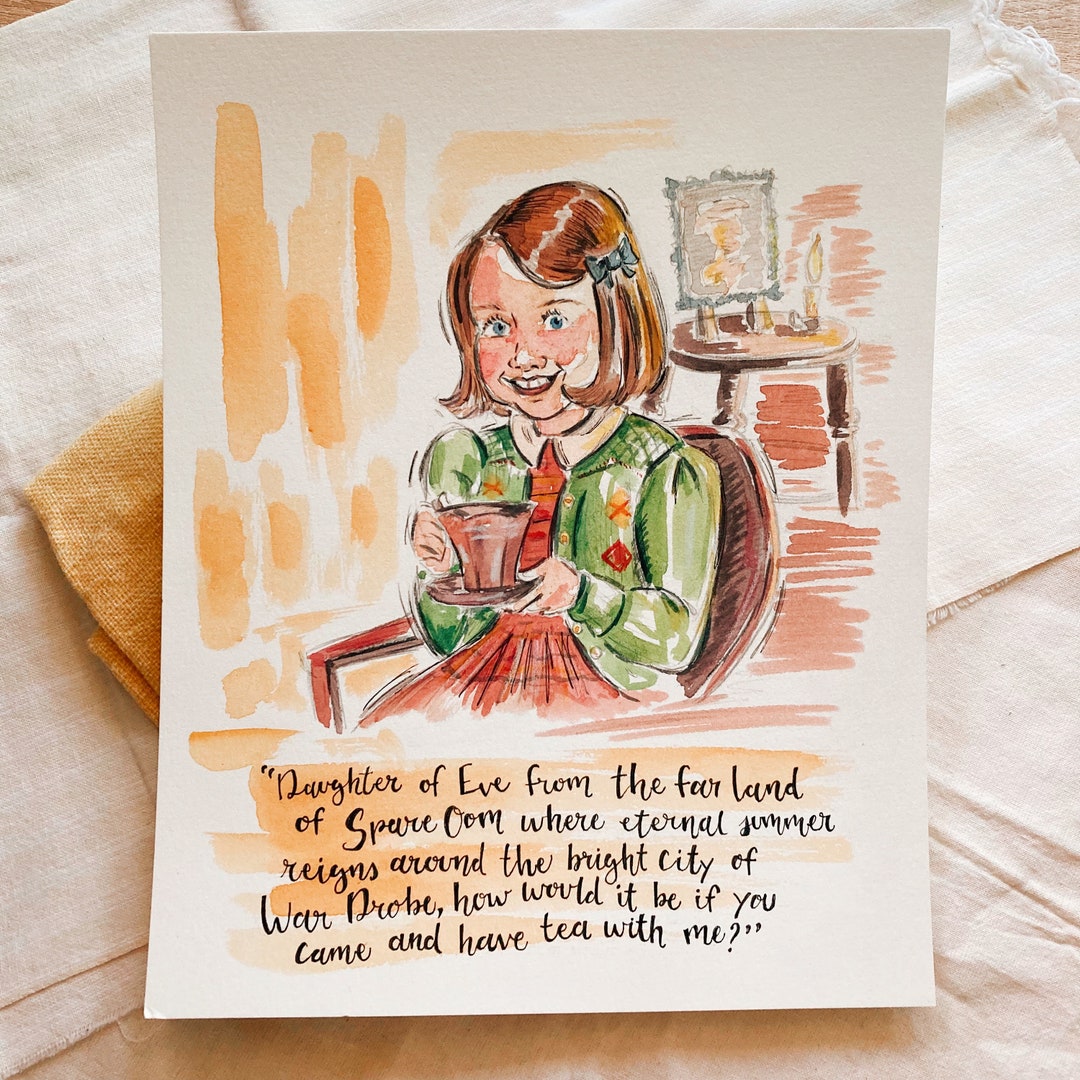 “Daughter of Eve from the far land
of Spare Oom where eternal summer
reigns around the bright city of
War Drobe, how would it be if you
came and have tea with me?”